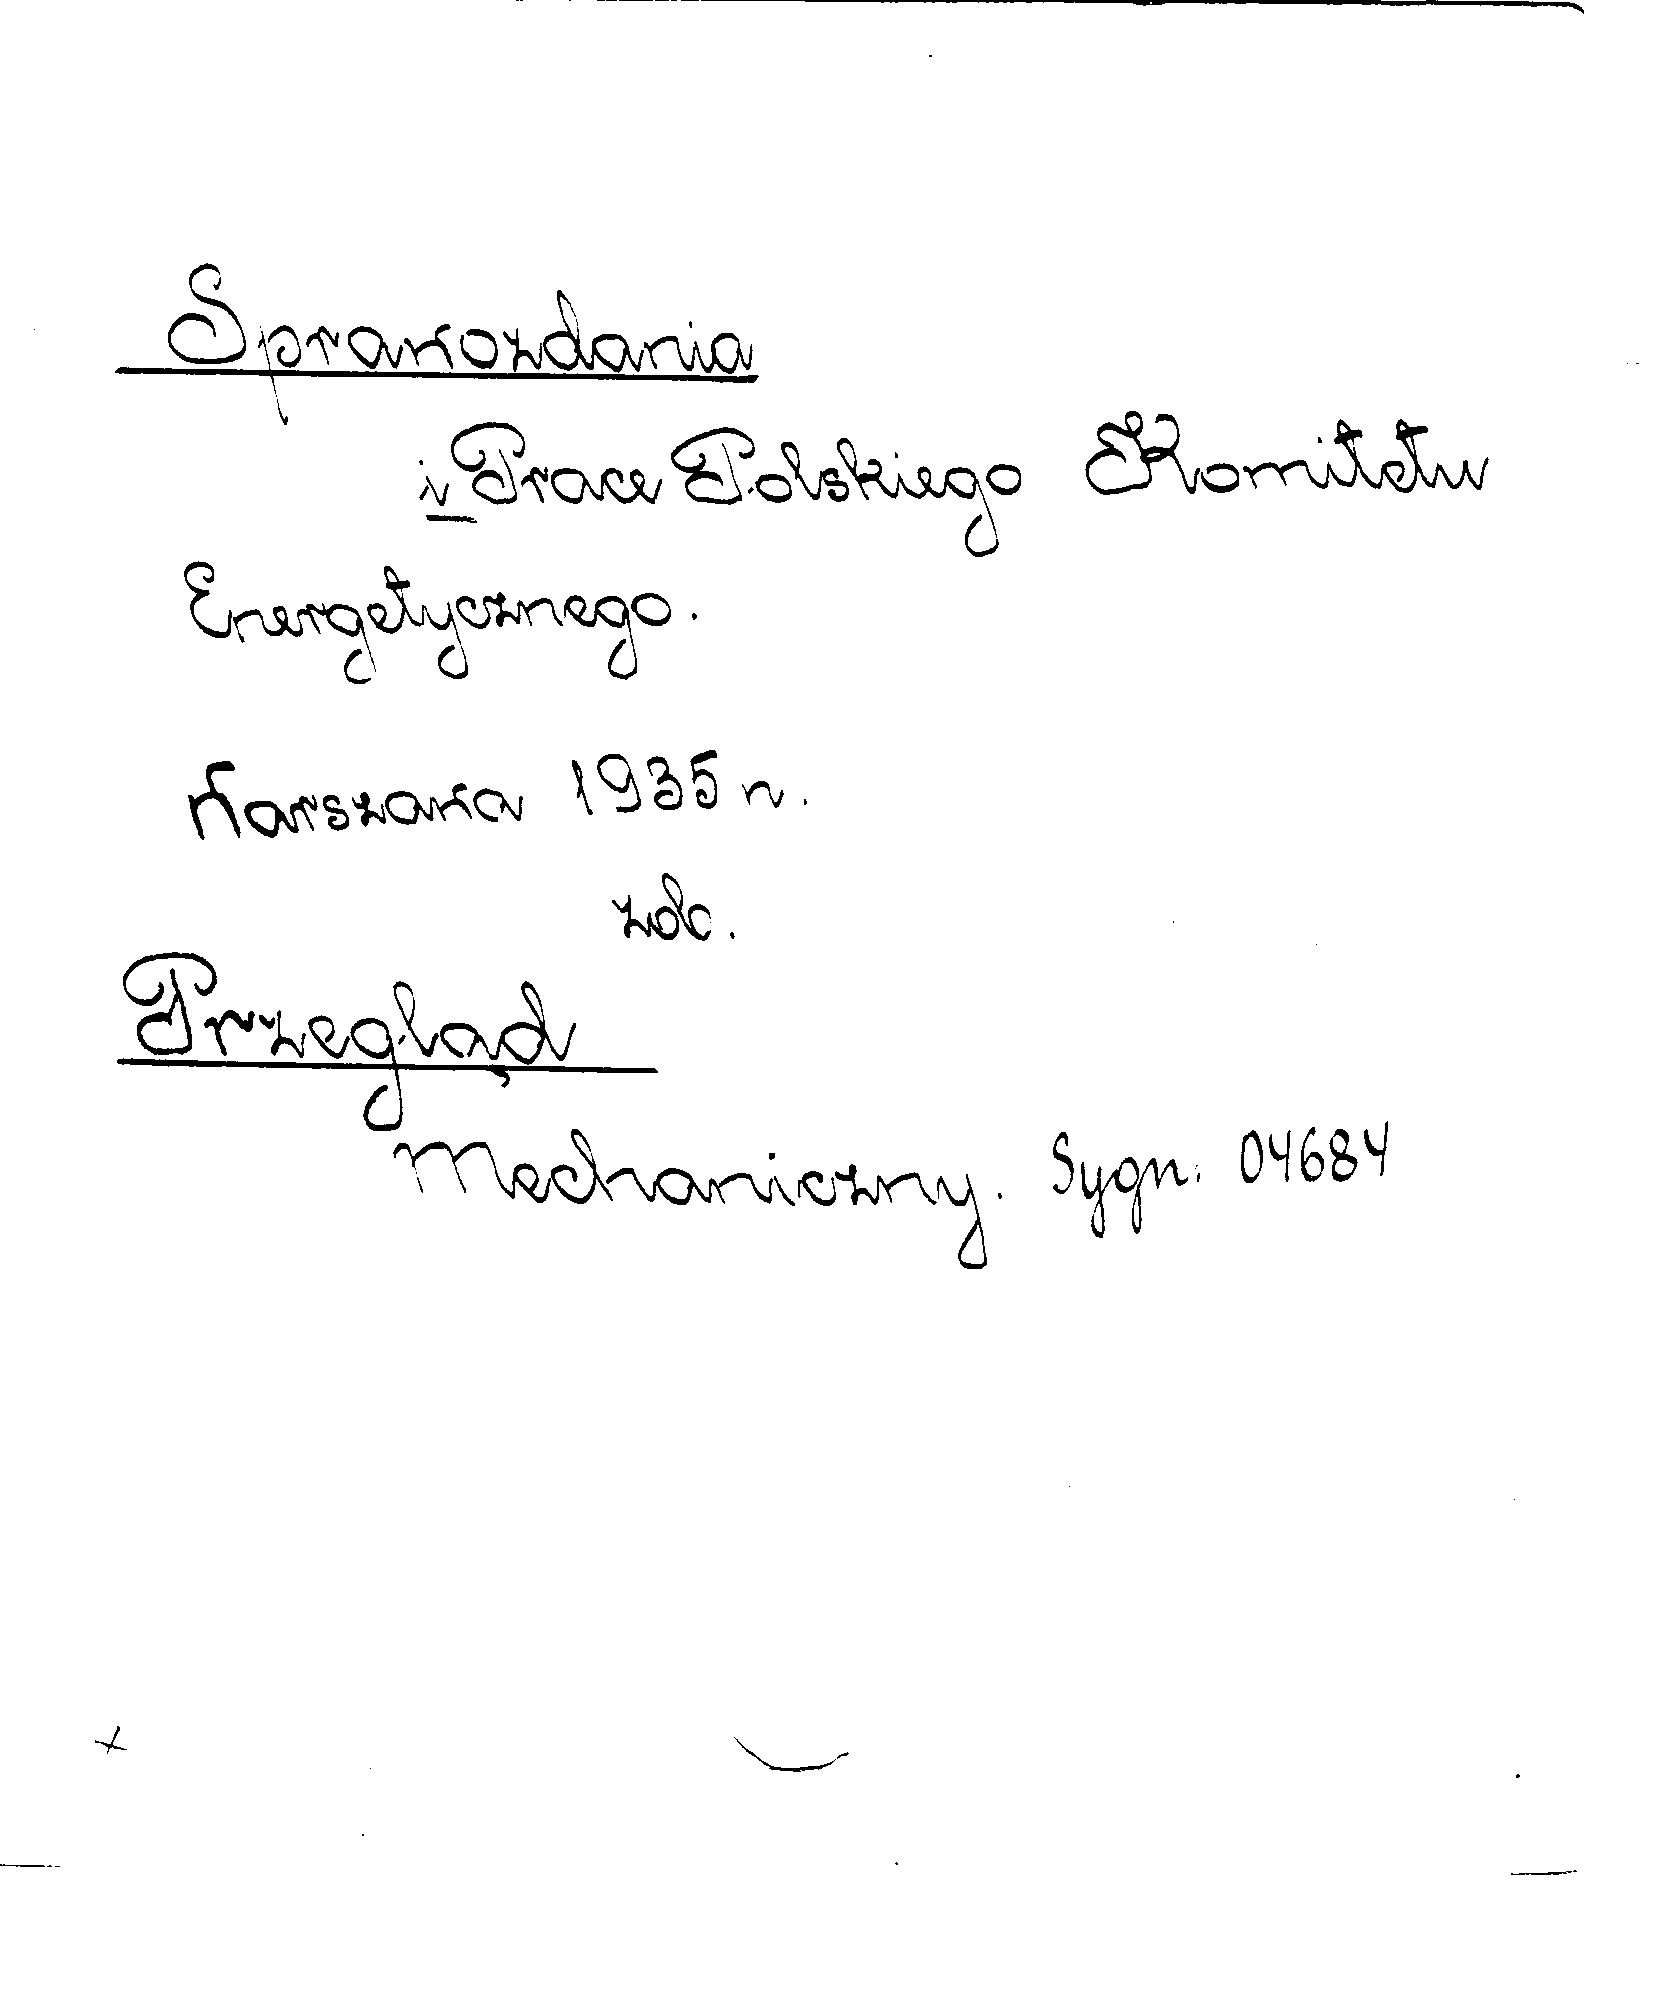 Sprawozdania
i Prace Polskiego Komitetu
Energetycznego.
Warszawa 1935 r.
zob.
Przegląd
Mechaniczny. Sygn. 04684